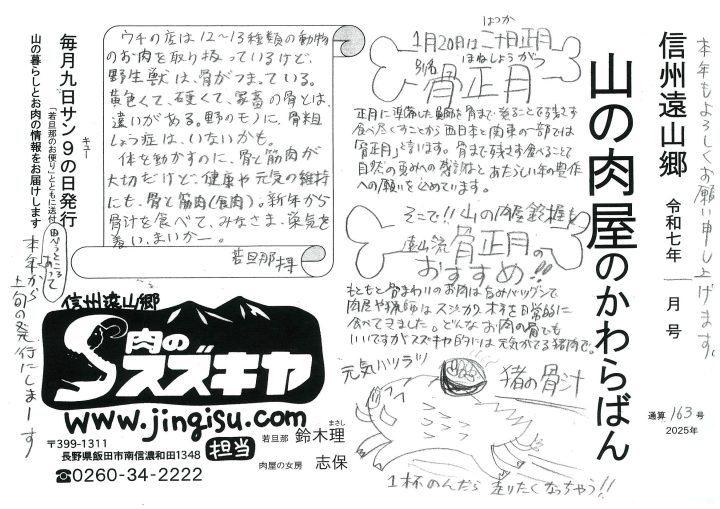 本年もよろしくお願い申し上げます。
信州遠山郷 令和七年 一月号
通算163号
2025年
山の肉屋のかわらばん
1月20日は二十日正月
はつか
別名 ほねしょうがつ
骨正月
正月に準備した鰤を骨まで煮ることで残さず
食べ尽くすことから西日本と関東の一部では
「骨正月」と言います。骨まで残さず食べることで
自然の恵みへの感謝とあたらしい年の豊作
への願いを込めています。
そこで!!山の肉屋鈴木屋
遠山流 骨正月の
おすすめ!!
もともと骨まわりのお肉は旨みバツグンで、
肉屋や猟師はスジカワ
食べてきました。どんなお肉の骨でも
いいですがスズキヤ的には元気がでる猪肉で。
元気ハツラツ
猪の骨汁
1杯のんだら走りたくなっちゃう!!
ウチの店は12〜13種類の動物
のお肉を取り扱っているけど、
野生獣は、骨がつまっている。
黄色くて、硬くて、家畜の骨とは、
違いがある。野のモノに、骨粗
しょう症は、いないかも。
体を動かすのに、骨と筋肉が
大切だけど、健康や元気の維持
にも、骨と筋肉(食肉)。新年から
骨汁を食べて、みなさま、栄気を
養い、まいかー。
若旦那拝
毎月九日サン9の日発行
キュー
「若旦那のお便り」とともに送付
山の暮らしとお肉の情報をお届けします
思うところあって
本年から
上旬の発行にしまーす
信州遠山郷
肉のスズキヤ
www.jingisu.com
〒399-1311
長野県飯田市南信濃和田1348
☎0260-34-2222
担当
若旦那 鈴木理
まさし
肉屋の女房 志保